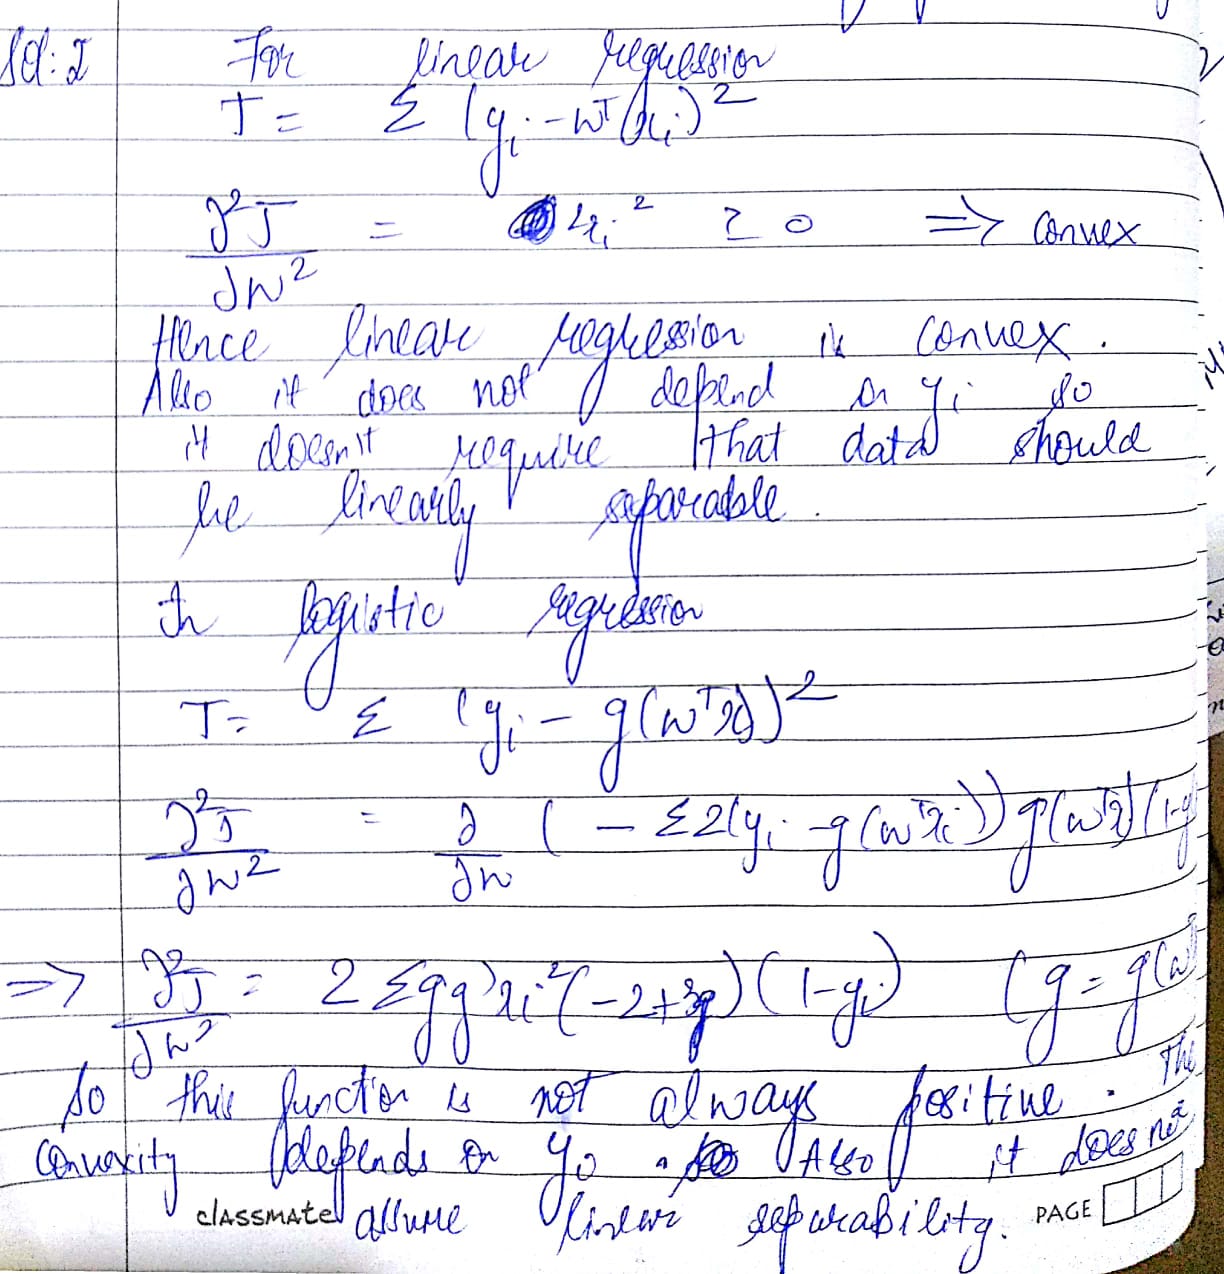 Sol: 2 For linear regression
J = Σ (yᵢ - wᵀxᵢ)²
∂²J/∂w² = xᵢ² ≥ 0 => convex
Hence linear regression is convex.
Also it does not depend on yᵢ so
it doesn't require that data should
be linearly separable.
In logistic regression
J = Σ (yᵢ - g(wᵀxᵢ))²
∂²J/∂w² = ∂/∂w (- Σ2(yᵢ - g(wᵀxᵢ)) g(wᵀxᵢ) (1-g
=> ∂²J/∂w² = 2 Σgg'xᵢ²(-2+3g) (1-yᵢ) (g = g(w
So this function is not always positive. The
convexity depends on yᵢ. Also it does not
assume linear separability.
classmate
PAGE